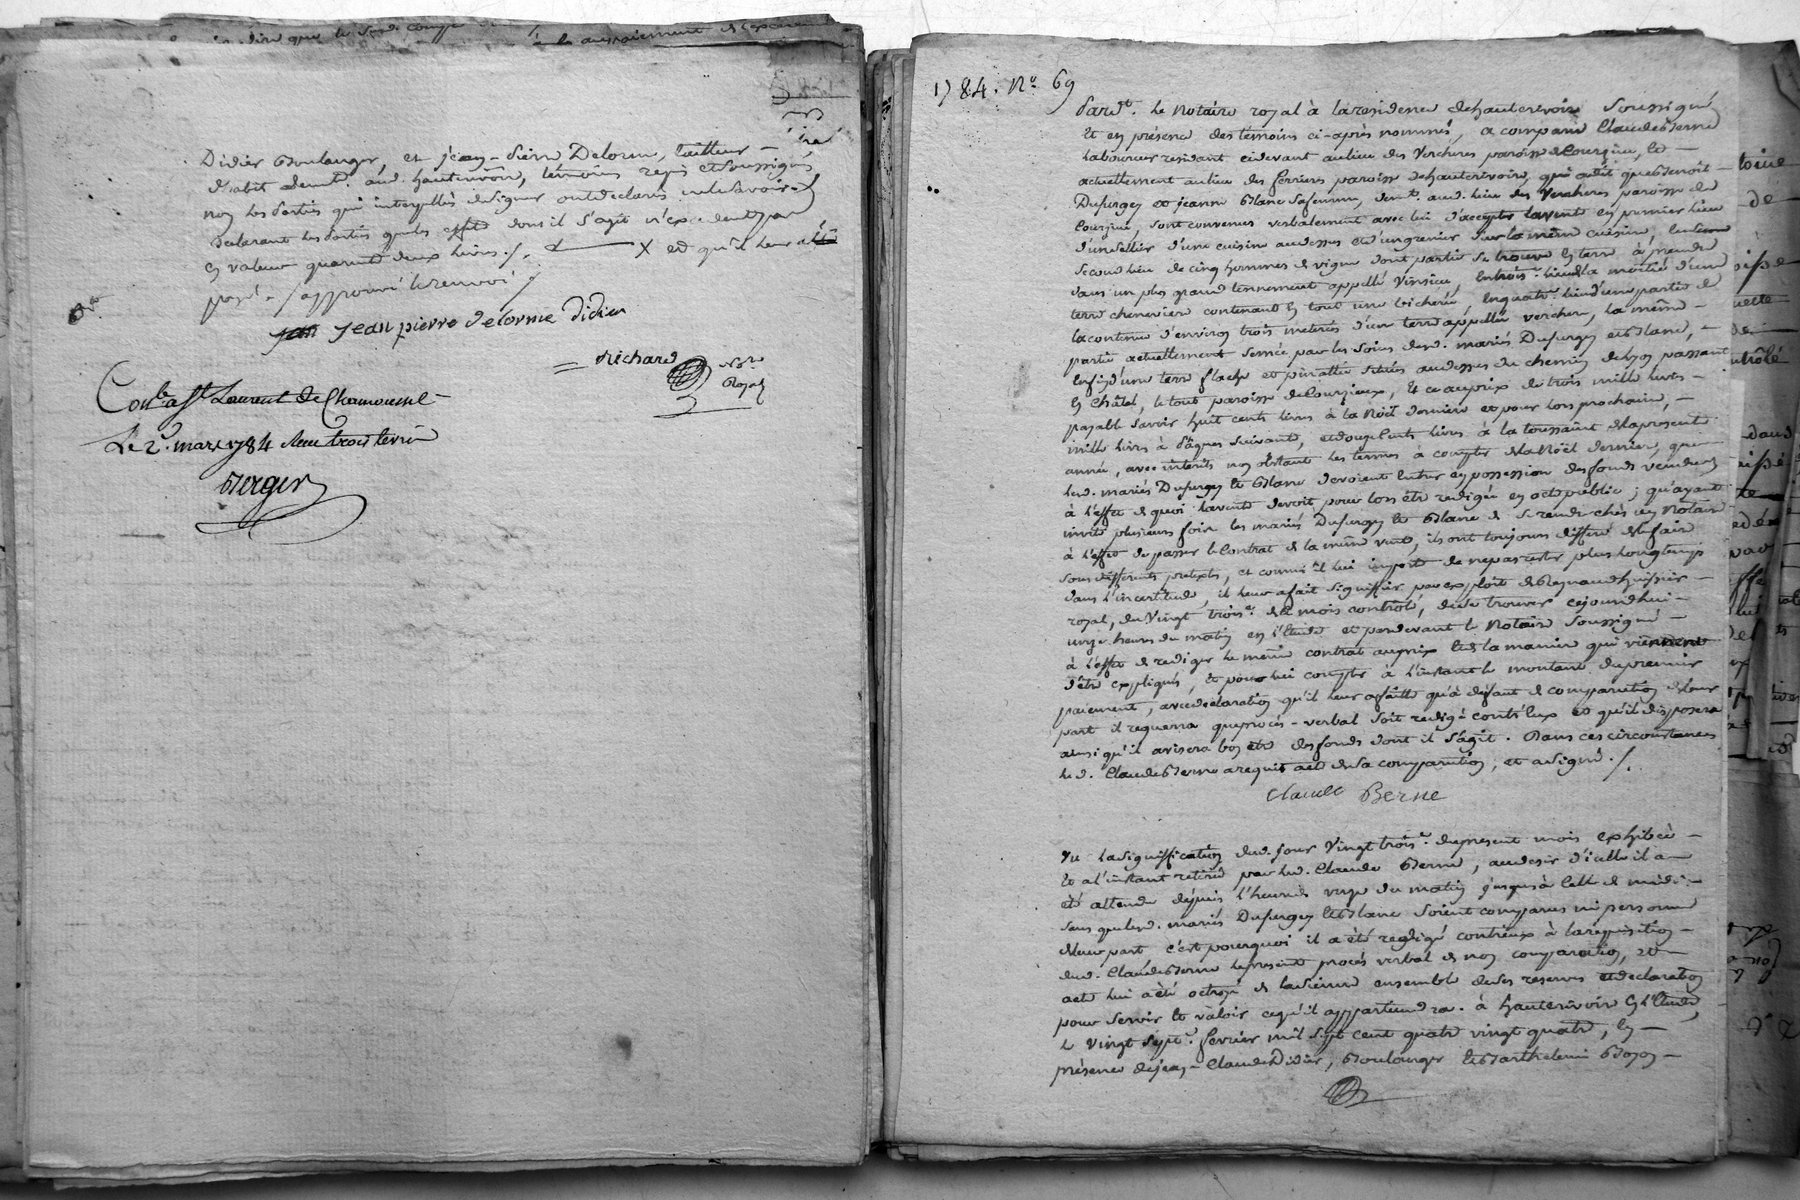 Didier Boulanger, et jean-pierre Delorme, tailleur
d'habit demt. aud. hauterivoire, temoins requis et soussignés
non les parties qui interpellées de signer ont déclaré ne le savoir
declarant les parties que les effets dont il s'agit n'excedent pas
en valeur quarante deux livres ./. X et qu'il leur a été
payé / approuvé le renvoi /
jean pierre delorme didier
Richard Nore.
Royal
Conlé a St Laurent de Chamousset
Le 2e. mars 1784 Reçu
Berger
1784. No. 69
Pardt. le Notaire royal à la residence de hauterivoire soussigné
et en présence des témoins ci-après nommés, a comparu Claude Berne
laboureur residant cidevant au lieu des Verchères paroisse de Courzieu, et
actuellement au lieu des ferrieres paroisse de hauterivoire, qui a dit que Benoit
Dufurgey et jeanne Blanc sa femme, demts. aud. lieu des Verchères paroisse de
Courzieu, sont convenus verbalement avec lui d'accepter la vente en premier lieu
d'un cellier d'une cuisine au dessus et d'un grenier sur la même cuisine, en
second lieu de cinq hommes de vigne dont partie se trouve en terre à prendre
dans un plus grand tennement appellé Vinsieu, en trois. lieu de la moitié d'une
terre cheneviere contenant en tout une bicherée, en quatr. lieu d'une partie de
la contenue d'environ trois meterées d'une terre appellée vercher, la même
partie actuellement semée par les soins desd. mariés Dufurgey et Blanc,
enfin d'une terre situées au dessus du chemin de Lyon passant
en Châtel, le tout paroisse de Courzieux, et ce au prix de trois mille livres
payable savoir huit cents livres à la Noël derniere et pour lors prochaine,
mille livres à Pâques suivant, et douze cents livres à la toussaint de la presente
année, avec intérêts non obstant les termes à compter de la Noël dernier, que
led. mariés Dufurgey et Blanc devoient entrer en possession des fonds vendus
à l'effet de quoi la vente devoit pour lors être redigée en acte public ; qu'ayant
invité plusieurs fois les mariés Dufurgey et Blanc de se rendre chés un Notaire
à l'effet de passer le Contrat de la même vente, ils ont toujours différé de le faire
sous différents pretextes, et comme il lui importe de ne pas rester plus longtemps
dans l'incertitude, il leur a fait signifier par exploit de Reynaud huissier
royal, du vingt trois. de ce mois controlé, de se trouver cejourd'hui
onze heures du matin en l'Etude et pardevant le Notaire soussigné
à l'effet de rediger le même contrat au prix et de la maniere qui viennent
d'être expliqués, et pour lui compter à l'instant le montant du premier
paiement, avec declaration qu'il leur a faitte qu'à défaut de comparution de leur
part il requerra que procès-verbal soit redigé contr'eux et qu'il disposera
ainsi qu'il avisera bon etre des fonds dont il s'agit. Dans ces circonstances
led. Claude Berne a requis acte de sa comparution, et a signé ./.
Claude Berne
Vu la signification dud. jour vingt trois. du present mois exhibée
et a l'instant retirée par led. Claude Berne, au desir d'icelle il a
été attendu depuis l'heure de onze du matin jusqu'à celle de midi
sans que lesd. mariés Dufurgey et Blanc soient comparus ni personne
de leur part c'est pourquoi il a été redigé contr'eux à la réquisition
dud. Claude Berne le present procès verbal de non comparution, et
acte lui a été octroyé de la sienne ensemble de ses reserves et declaration
pour servir et valoir ce qu'il appartiendra. à hauterivoire en l'Etude,
le vingt sept. fevrier mil sept cent quatre vingt quatre, en
présence de jean-Claude Didier, Boulanger et Barthelemi